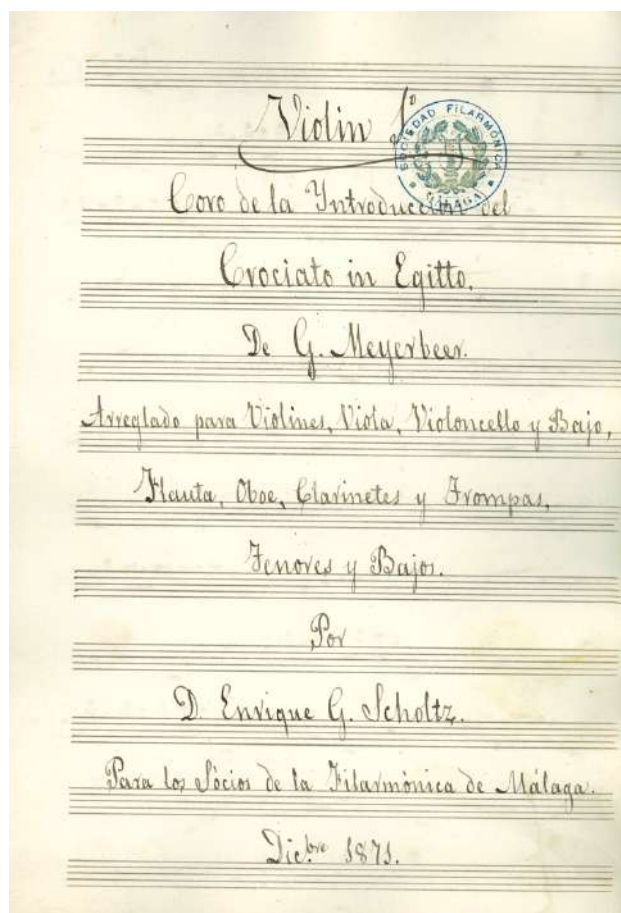 Violin 1º
SOCIEDAD FILARMÓNICA
MÁLAGA
Coro de la Yntroduccion del
Crociato in Egitto.
De G. Meyerbeer.
Arreglado para Violines, Viola, Violoncello y Bajo,
Flauta, Oboe, Clarinetes y Trompas,
Tenores y Bajos.
Por
D. Enrique G. Scholtz.
Para los Sócios de la Filarmónica de Málaga.
Dicbre 1871.